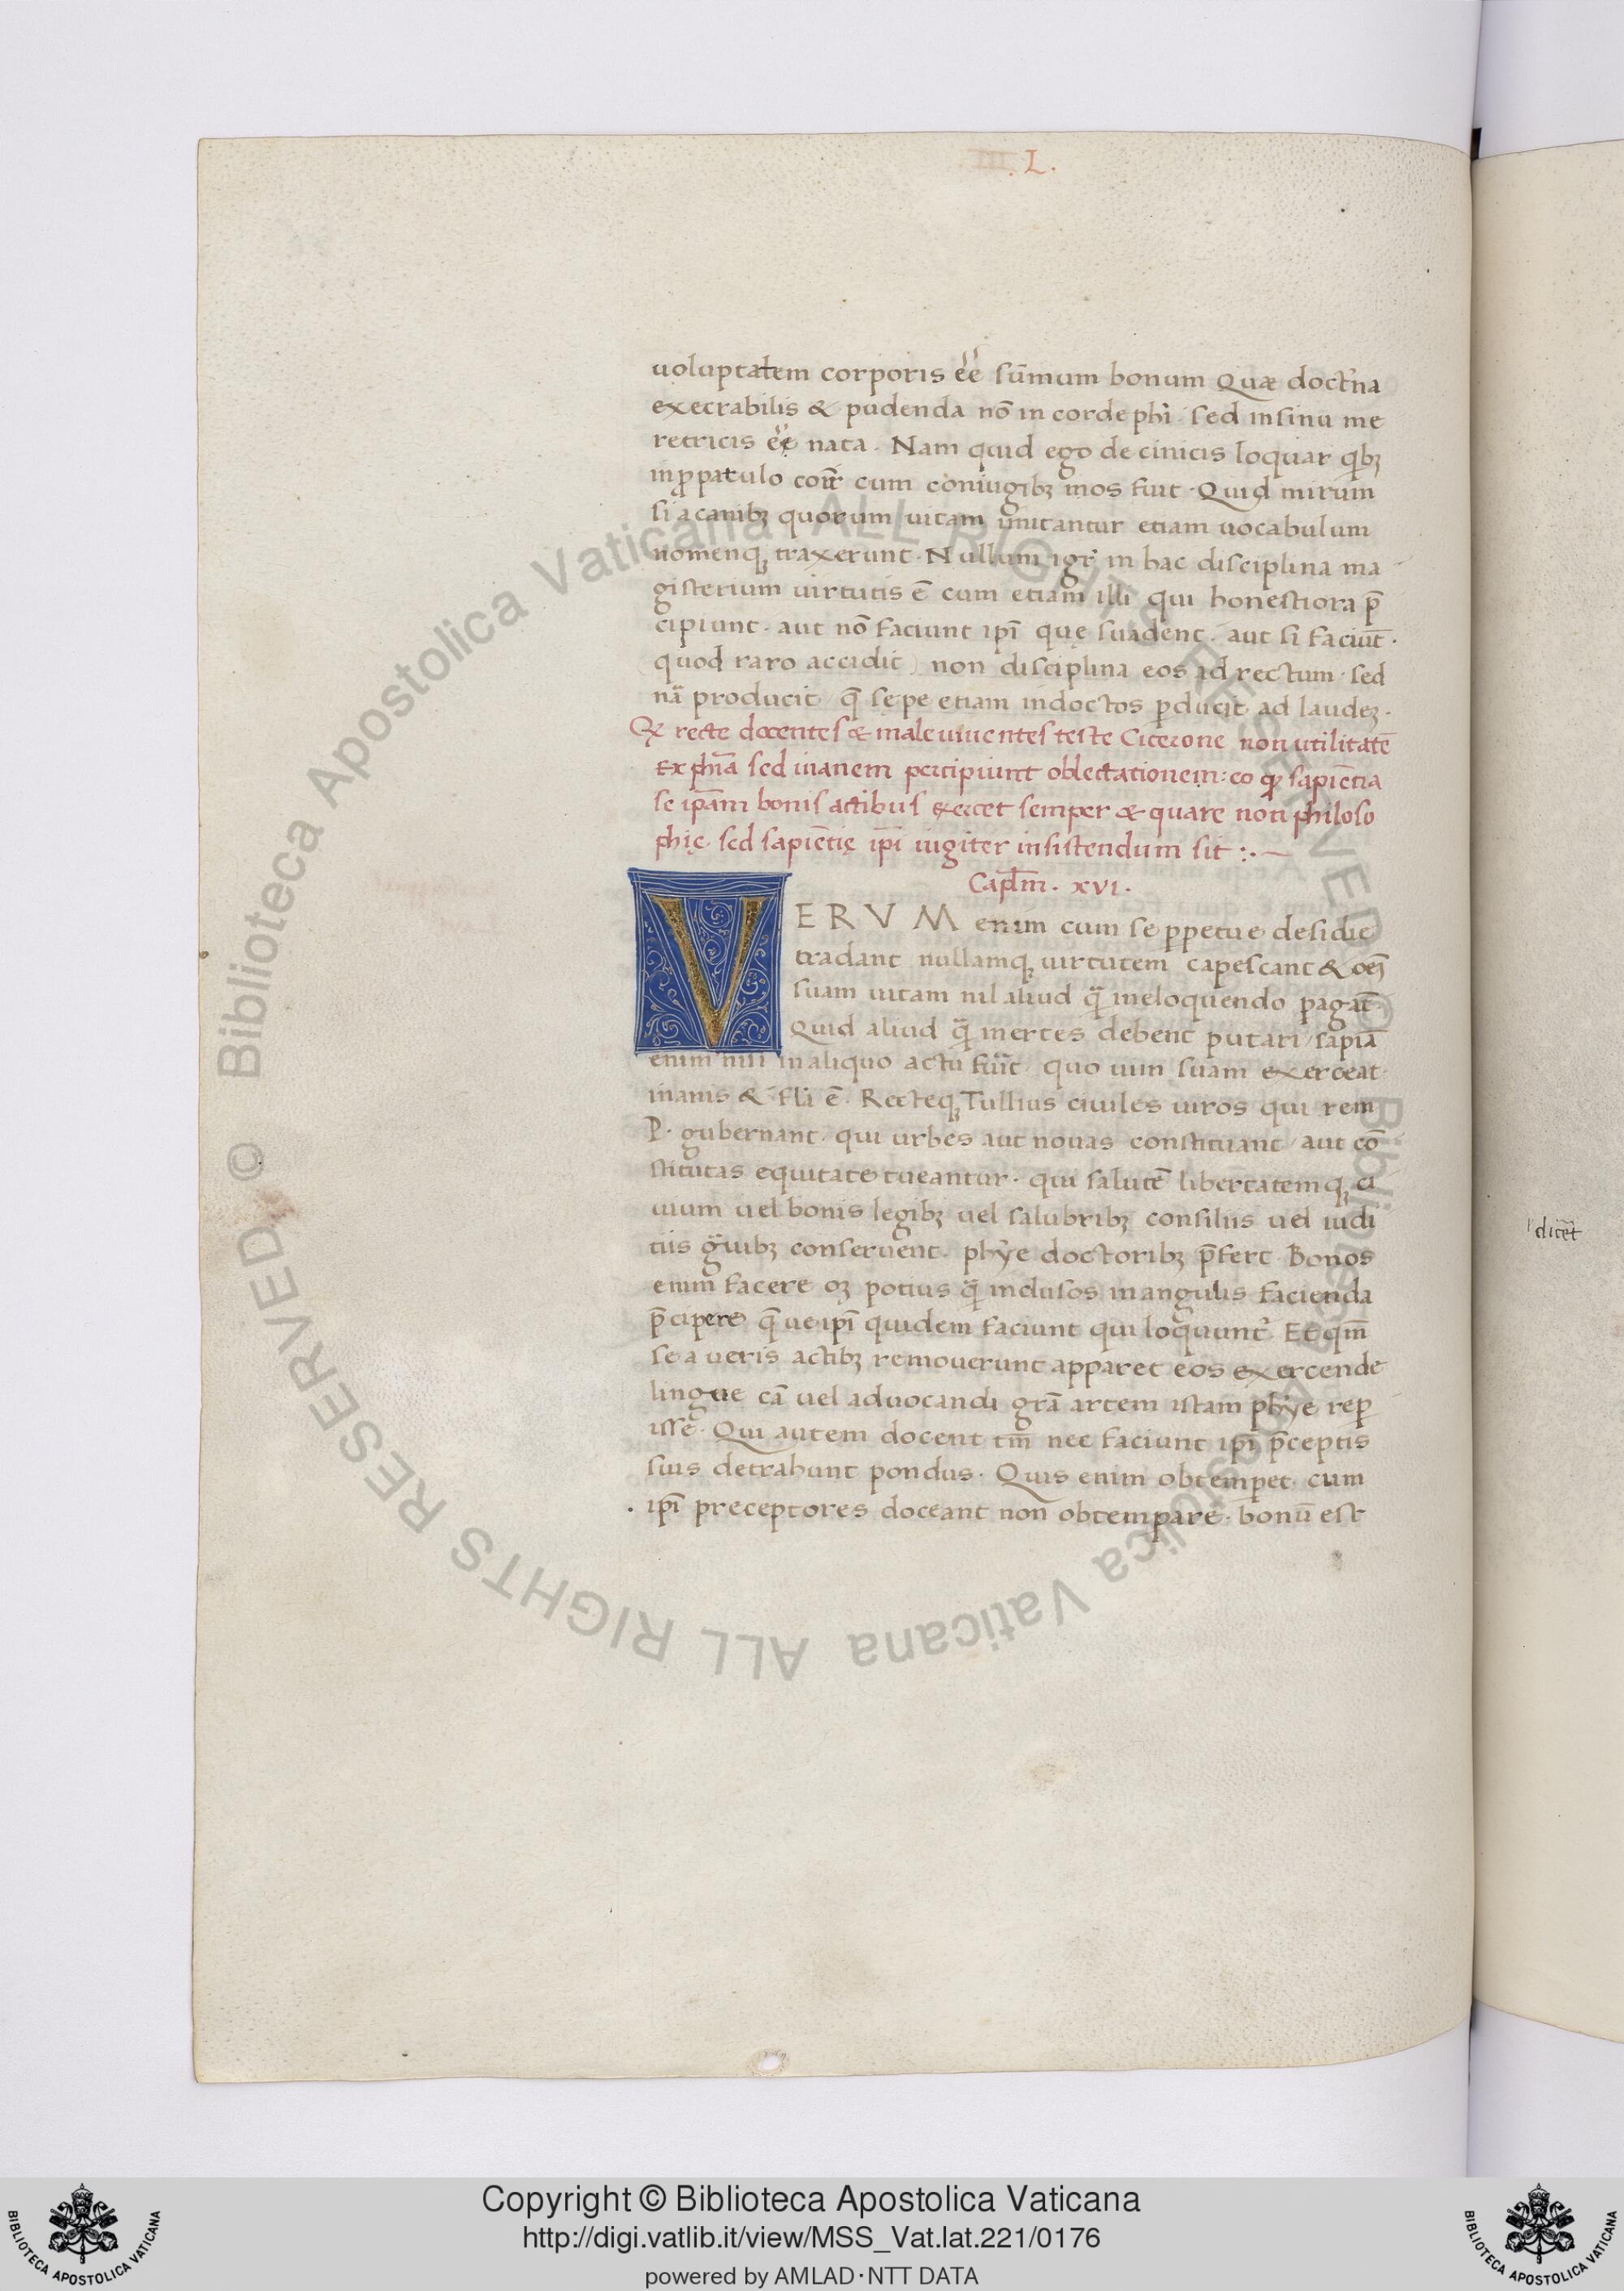 III. L.
uoluptatem corporis e͞e su͞mum bonum Quæ doct͛na
execrabilis & pudenda no͞ in corde ph͞i sed in sinu me
retricis e͞e nata. Nam quid ego de cinicis loquar qꝫ
in ꝓpatulo coi͞r cum coniugibꝫ mos fuit. Quid mirum
si a canibꝫ quorum uitam imitantur etiam uocabulum
nomenqꝫ traxerunt. Nullum igr͛ in hac disciplina ma
gisterium uirtutis e͞ cum etiam illi qui honestiora p͞
cipiunt. aut no͞ faciunt ip͞i quę suadent. aut si faciu͞t.
quod raro accidit) non disciplina eos ad rectum. sed
na͞ producit / q͞ sępe etiam indoctos ꝑducit ad laudeꝫ.
Qꝫ recte docentes & male uiuentes teste Cicerone non utilitate͞
ex ph͞ia sed inanem percipiunt oblectationem: eo qꝫ sapie͞tia
se ip͞am bonis actibus exercet semper & quare non philoso
phię. sed sapie͞tię ip͞i iugiter insistendum sit :.
Cap͞lm. xvi.
VERVM enim cum se ꝑpetue desidie
tradant nullamqꝫ uirtutem capescant & oe͞s
suam uitam nil aliud q͞ in eloquendo ꝑaga͞t.
Quid aliud q͞ inertes debent putari / sapia͞
enim nisi in aliquo actu fui͞t / quo uim suam exerceat
inanis & fl͞a e͞. Recteqꝫ Tullius ciuiles uiros qui rem
P. gubernant. qui urbes aut nouas constituant / aut co͞
stitutas equitate tueantur. qui salute͞ libertatemqꝫ ci
uium uel bonis legibꝫ uel salubribꝫ consiliis uel iudi
tiis g͛uibꝫ conseruent. phy͛e doctoribꝫ p͞fert. Bonos
enim facere oꝫ potius q͞ inclusos in angulis facienda
p͞cipere q͞ ne ip͞i quidem faciunt qui loquunt͛. Et qm͞
se a ueris actibꝫ remouerunt apparet eos exercende
lingue ca͞ uel aduocandi gr͞a artem istam phy͛e reꝑ
isse͞. Qui autem docent tm͞ nec faciunt ip͞i p͞ceptis
suis detrahunt pondus. Quis enim obtemꝑet. cum
ip͞i preceptores doceant non obtemꝑare. bonu͞ est
dice͞t
© Biblioteca Apostolica Vaticana ALL RIGHTS RESERVED
© Biblioteca Apostolica Vaticana ALL RIGHTS RESERVED
Copyright © Biblioteca Apostolica Vaticana
http://digi.vatlib.it/view/MSS_Vat.lat.221/0176
powered by AMLAD·NTT DATA
BIBLIOTECA APOSTOLICA VATICANA
BIBLIOTECA APOSTOLICA VATICANA